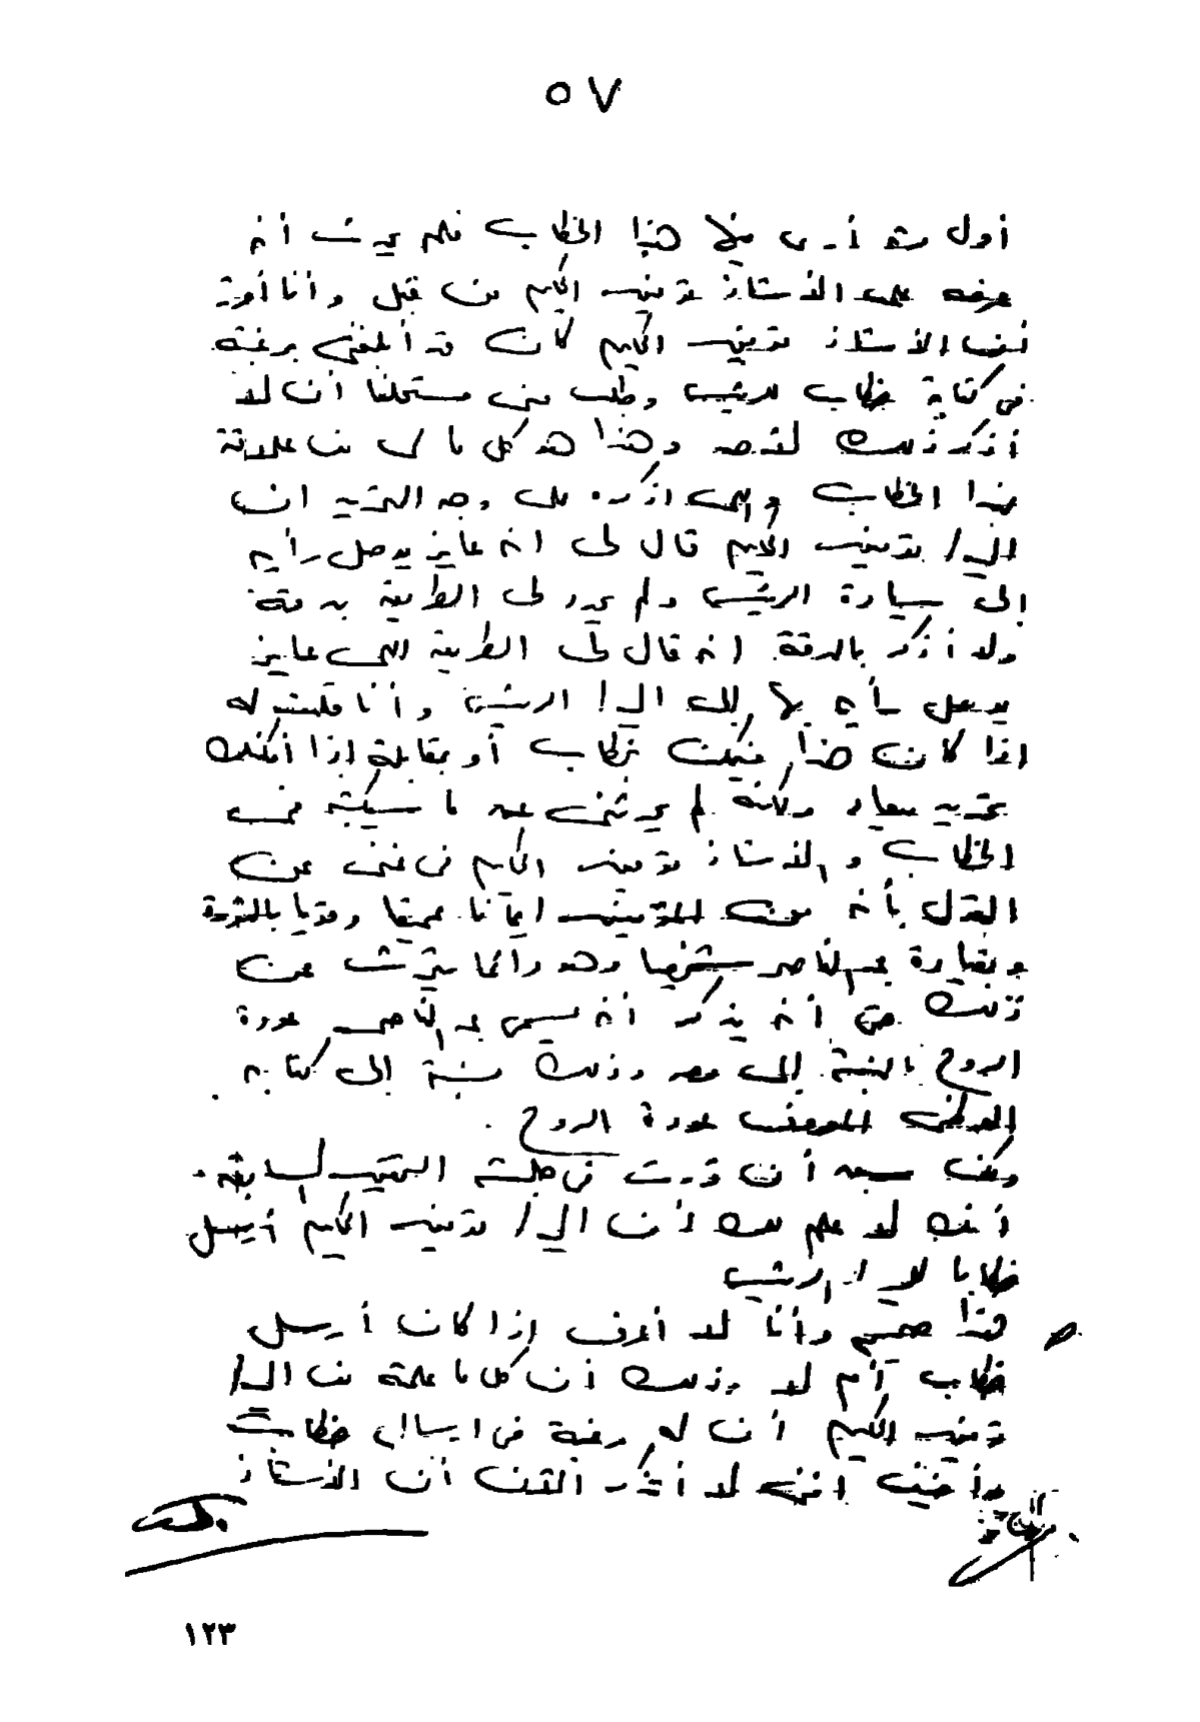 ٥٧
أول مرة أرى فيها هذا الخطاب فلم يحدث أنه
عرضه على الأستاذ توفيق الحكيم من قبل وأنا أقرر
أن الأستاذ توفيق الحكيم كان قد أبلغنى برغبته
فى كتابة خطاب للرئيس وطلب منى مستحلفا أن لا
أذكر ذلك لأحد وهذا هو كل ما لى من علاقة
بهذا الخطاب والذى اذكره على وجه التحديد ان
السيد/ توفيق الحكيم قال لى انه عايز يوصل رأيه
إلى سيادة الرئيس ولم يحدد لى الطريقة بدقة
ولا أذكر بالدقة انه قال لى الطريقة اللى عايز
يوصل رأيه بها إلى السيد/ الرئيس وأنا قلت له
اذا كان هذا فيمكن بخطاب أو بمقابلة إذا أمكنك
تحديد ميعاد ولكنه لم يحدثنى عن ما سيكتبه فى
الخطاب والأستاذ توفيق الحكيم فى غنى عن
القول بأنه من المؤمنين ايمانا عميقا وقويا بالثورة
وبقيادة عبد الناصر شخصيا وهو دائما يتحدث عن
ذلك حتى أنه يذكر أنه يسمى عبد الناصر عودة
الروح بالنسبة إلى مصر وذلك نسبة إلى كتابه
المعروف عودة الروح .
ولكن سبق أن قررت فى جلسة التحقيق السابقة
أنك لا علم لك بأن السيد/ توفيق الحكيم أرسل
خطابا للسيد الرئيس
هذا صحيح وأنا لا أعرف إذا كان أرسل
خطاب أم لا وذلك أن كل ما علمته من السيد/
توفيق الحكيم أن له رغبة فى ارسال خطاب
وأضيف اننى لا أذكر الآن أن الأستاذ
١٢٣